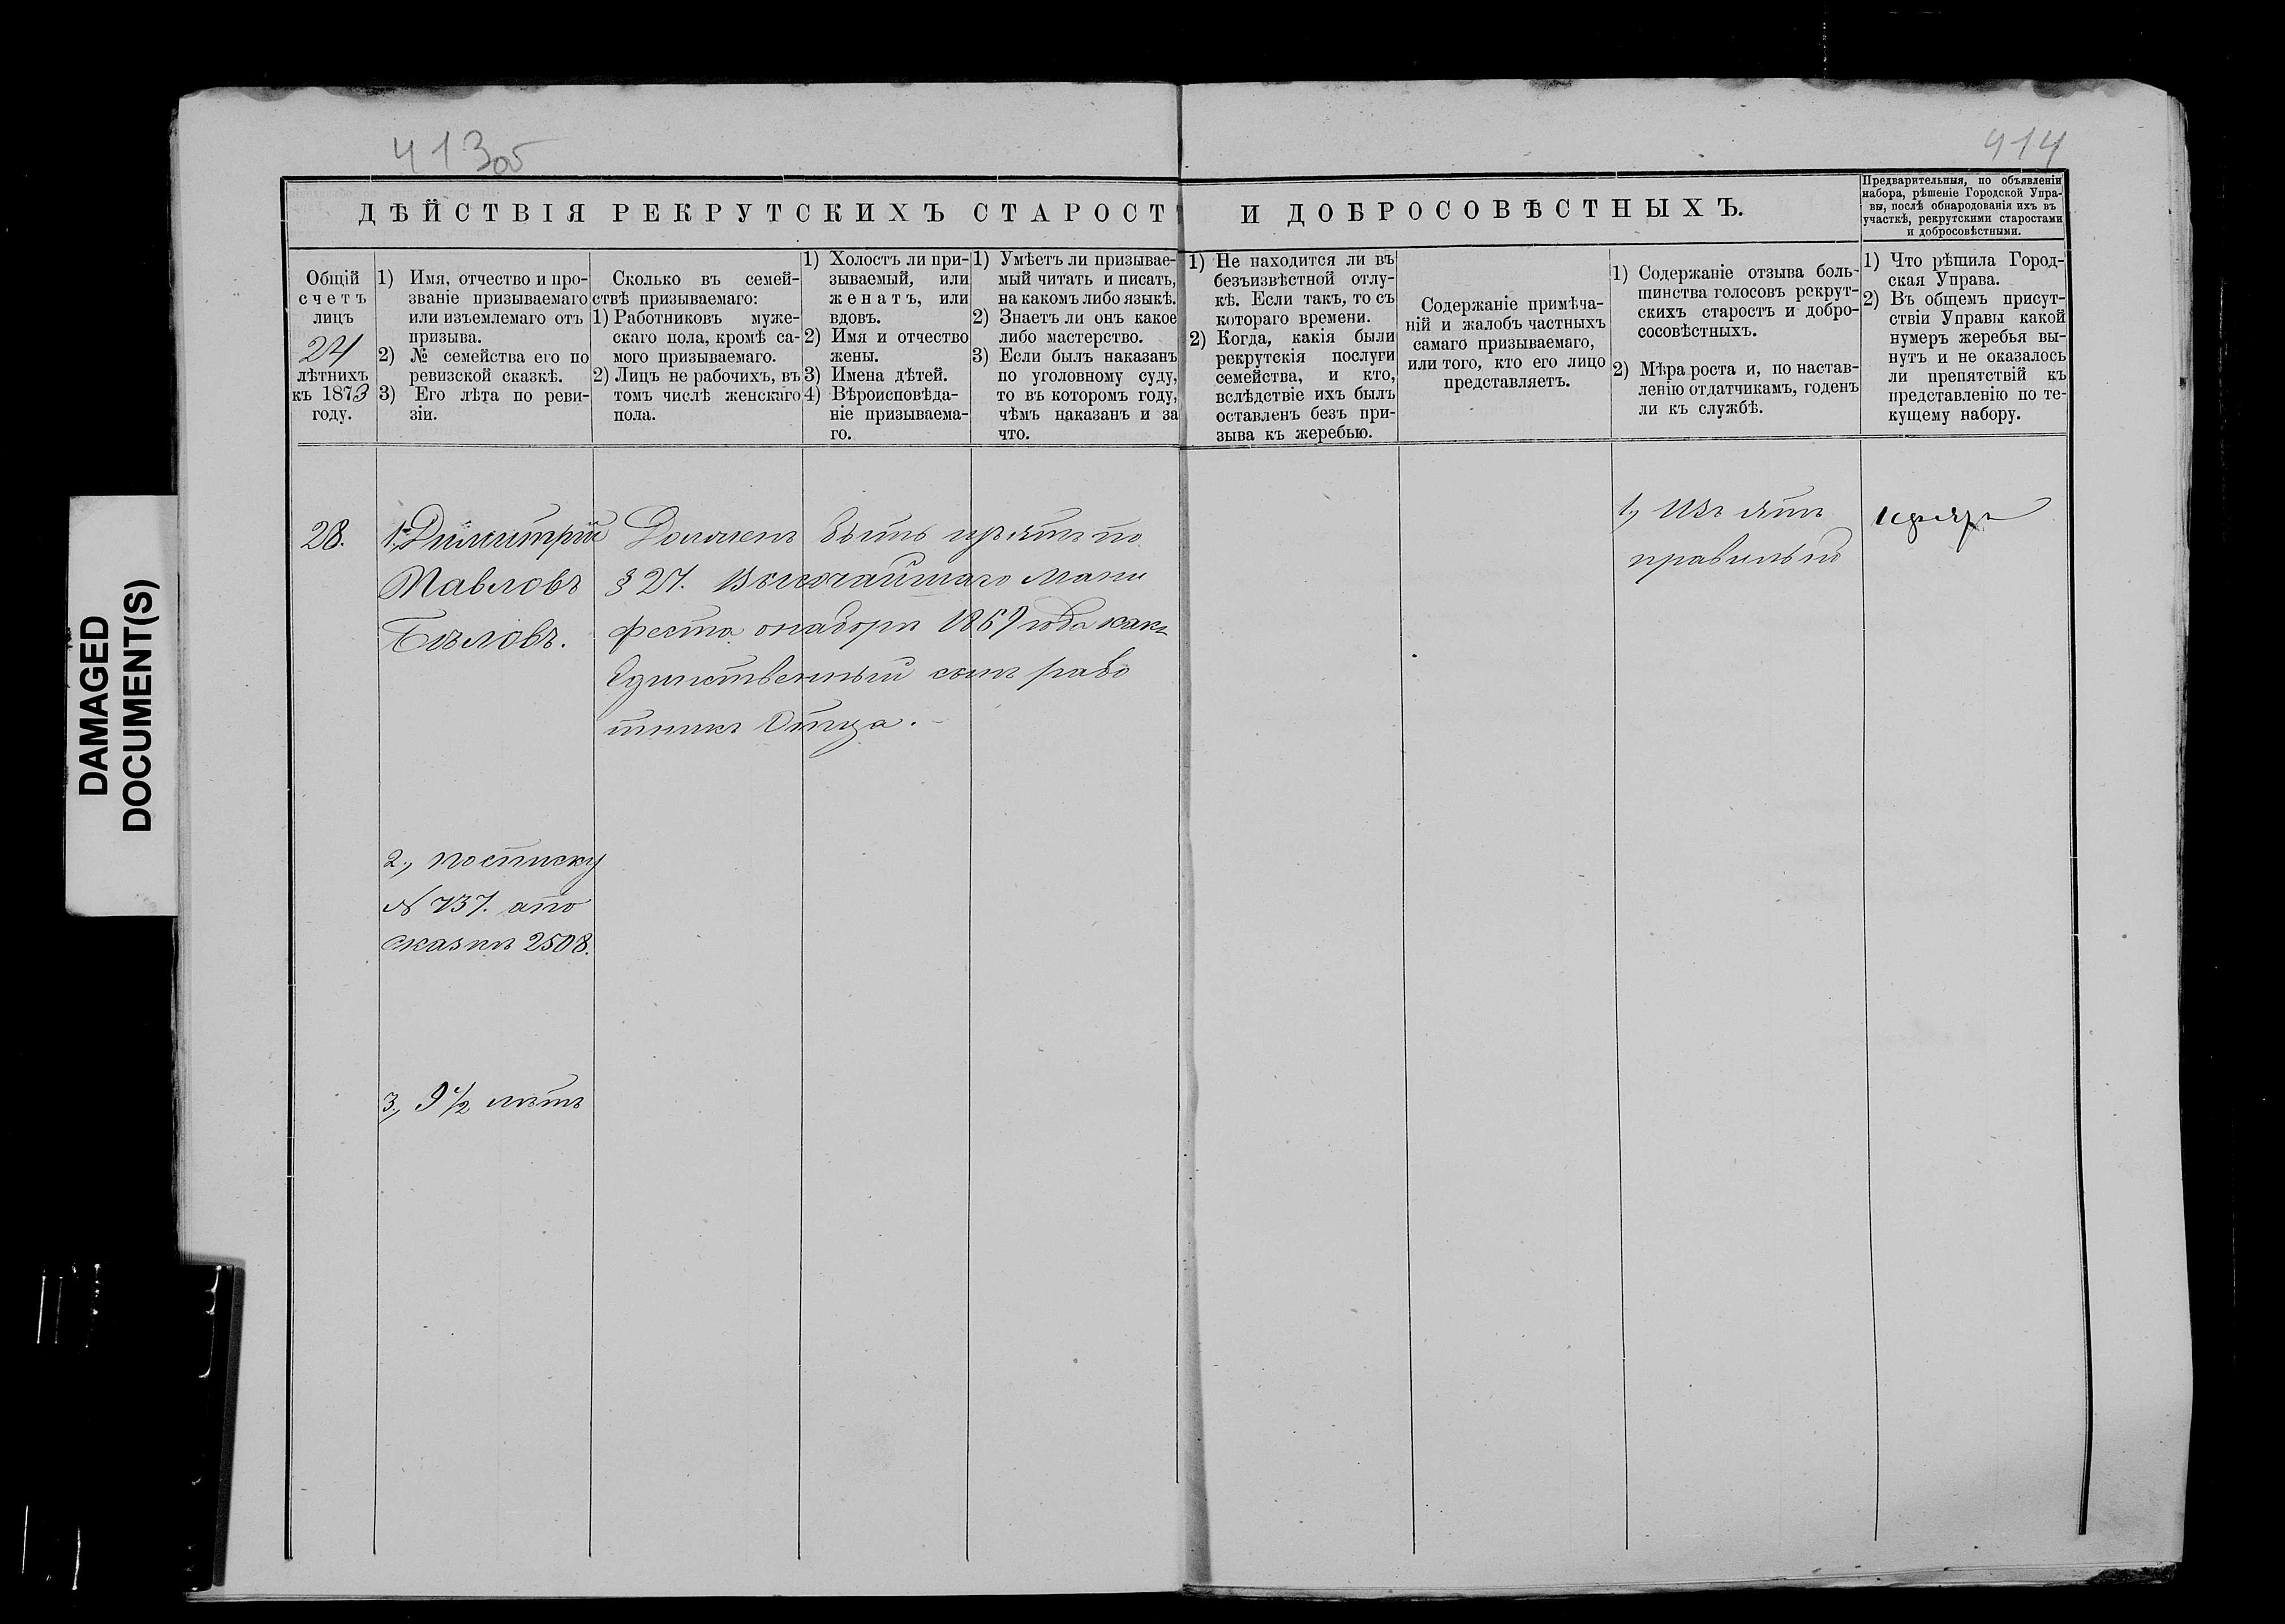 413об
414
ДѢЙСТВІЯ РЕКРУТСКИХЪ СТАРОСТЪ И ДОБРОСОВѢСТНЫХЪ.
Предварительныя, по объявленіи
набора, рѣшеніе Городской Упра-
вы, послѣ обнародованія ихъ въ
участкѣ, рекрутскими старостами
и добросовѣстными.
Общій
счетъ
лицъ
24
лѣтнихъ
къ 1873
году.
1) Имя, отчество и про-
званіе призываемаго
или изъемлемаго отъ
призыва.
2) № семейства его по
ревизской сказкѣ.
3) Его лѣта по реви-
зіи.
Сколько въ семей-
ствѣ призываемаго:
1) Работниковъ муже-
скаго пола, кромѣ са-
мого призываемаго.
2) Лицъ не рабочихъ, въ
томъ числѣ женскаго
пола.
1) Холостъ ли при-
зываемый, или
женатъ, или
вдовъ.
2) Имя и отчество
жены.
3) Имена дѣтей.
4) Вѣроисповѣда-
ніе призываема-
го.
1) Умѣетъ ли призывае-
мый читать и писать,
на какомъ либо языкѣ.
2) Знаетъ ли онъ какое
либо мастерство.
3) Если былъ наказанъ
по уголовному суду,
то въ которомъ году,
чѣмъ наказанъ и за
что.
1) Не находится ли въ
безъизвѣстной отлу-
кѣ. Если такъ, то съ
котораго времени.
2) Когда, какія были
рекрутскія послуги
семейства, и кто,
вслѣдствіе ихъ былъ
оставленъ безъ при-
зыва къ жеребью.
Содержаніе примѣча-
ній и жалобъ частныхъ
самаго призываемаго,
или того, кто его лицо
представляетъ.
1) Содержаніе отзыва боль-
шинства голосовъ рекрут-
скихъ старостъ и добро-
сосовѣстныхъ.
2) Мѣра роста и, по настав-
ленію отдатчикамъ, годенъ
ли къ службѣ.
1) Что рѣшила Город-
ская Управа.
2) Въ общемъ присут-
ствіи Управы какой
нумеръ жеребья вы-
нутъ и не оказалось
ли препятствій къ
представленію по те-
кущему набору.
28.
1, Димитрій
Павловъ
Бѣловъ.
2, по списку
№ 737. а по
сказкѣ 2508.
3, 9½ лѣтъ
Долженъ быть изъятъ по
§ 27. Высочайшаго Мани
феста о наборѣ 1869 года какъ
Единственный сынъ рабо
тникъ Отца.
1, Изъятъ
правильно
DAMAGED
DOCUMENT(S)